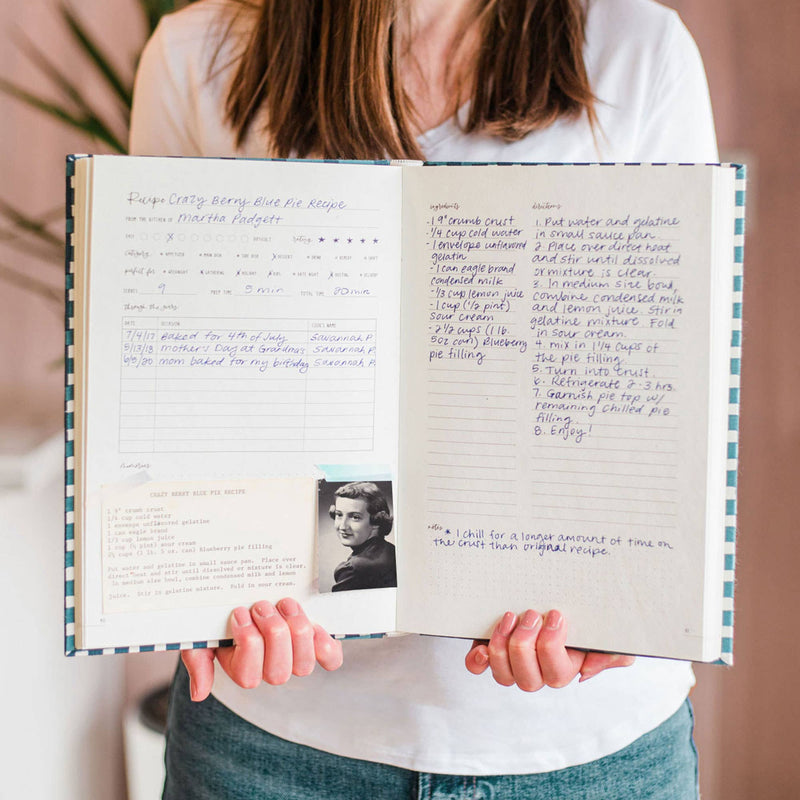 Recipe Crazy Berry Blue Pie Recipe
FROM THE KITCHEN OF Martha Padgett
EASY X DIFFICULT rating ★ ★ ★ ★ ★
category: • APPETIZER • MAIN DISH • SIDE DISH • DESSERT • DRINK • BREAKFAST
perfect for • WEEKNIGHT • GATHERING • HOLIDAY • DATE NIGHT
SERVES 9 PREP TIME 5 min TOTAL TIME 20 min
through the years:
DATE OCCASION COOK'S NAME
7/4/17 Baked for 4th of July Savannah P.
5/13/18 mother's Day at Grandma's Savannah P.
6/5/20 mom baked for my birthday Savannah P.
memories
CRAZY BERRY BLUE PIE RECIPE
1 9" crumb crust
1/4 cup cold water
1 envelope unflavored gelatine
1 can eagle brand
1/3 cup lemon juice
1 cup (½ pint) sour cream
2½ cups (1 lb. 5 oz. can) Blueberry pie filling
Put water and gelatine in small sauce pan. Place over
direct heat and stir until dissolved or mixture is clear.
In medium size bowl, combine condensed milk and lemon
juice. Stir in gelatine mixture. Fold in sour cream.
ingredients
-1 9" crumb crust
-1/4 cup cold water
-1 envelope unflavored
gelatin
-1 can eagle brand
condensed milk
-1/3 cup lemon juice
-1 cup (1/2 pint)
sour cream
-2 1/2 cups (1 lb.
5oz can) Blueberry
pie filling
directions
1. Put water and gelatine
in small sauce pan.
2. Place over direct heat
and stir until dissolved
or mixture is clear.
3. In medium size bowl,
combine condensed milk
and lemon juice. Stir in
gelatine mixture. Fold
in sour cream.
4. mix in 1 1/4 cups of
the pie filling.
5. Turn into crust.
6. Refrigerate 2-3 hrs.
7. Garnish pie top w/
remaining chilled pie
filling.
8. Enjoy!
notes * I chill for a longer amount of time on
the crust than original recipe.